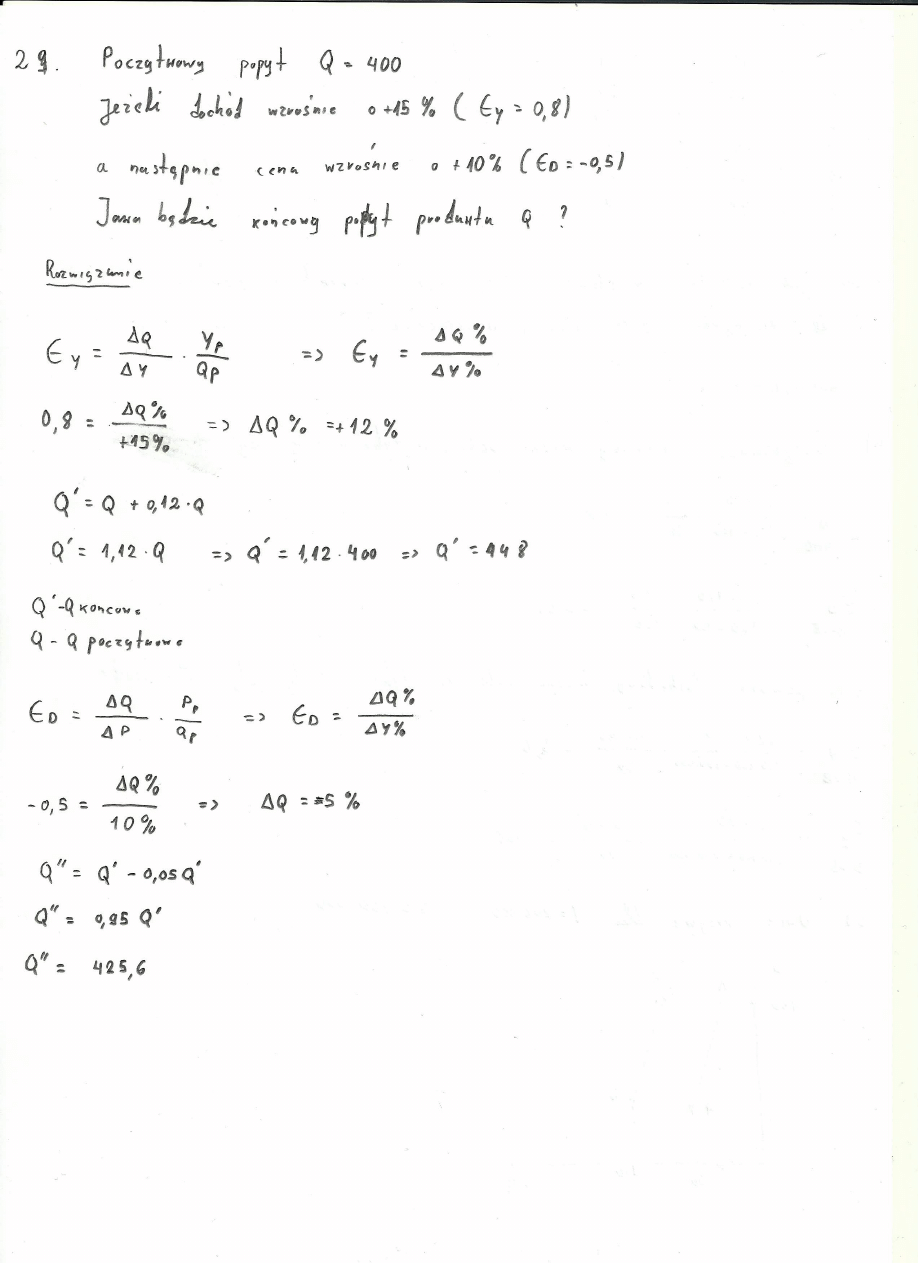 29. Początkowy popyt Q = 400
Jeżeli dochód wzrośnie o +15 % ( ϵY = 0,8)
a następnie cena wzrośnie o + 10% (ϵD = -0,5)
Jaka będzie końcowy popyt produktu Q ?
Rozwiązanie
ϵY = ΔQ/ΔY · YP/QP => ϵY = ΔQ%/ΔY%
0,8 = ΔQ%/+15% => ΔQ % =+12 %
Q' = Q + 0,12·Q
Q' = 1,12·Q => Q' = 1,12·400 => Q' = 448
Q'-Q końcowe
Q - Q początkowe
ϵD = ΔQ/ΔP · PP/QP => ϵD = ΔQ%/ΔY%
-0,5 = ΔQ%/10% => ΔQ = -5 %
Q'' = Q' - 0,05Q'
Q'' = 0,95 Q'
Q'' = 425,6